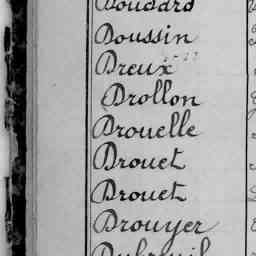 Doudard
Doussin
Dreux
Drollon
Drouelle
Drouet
Drouet
Drouyer
Dubreuil